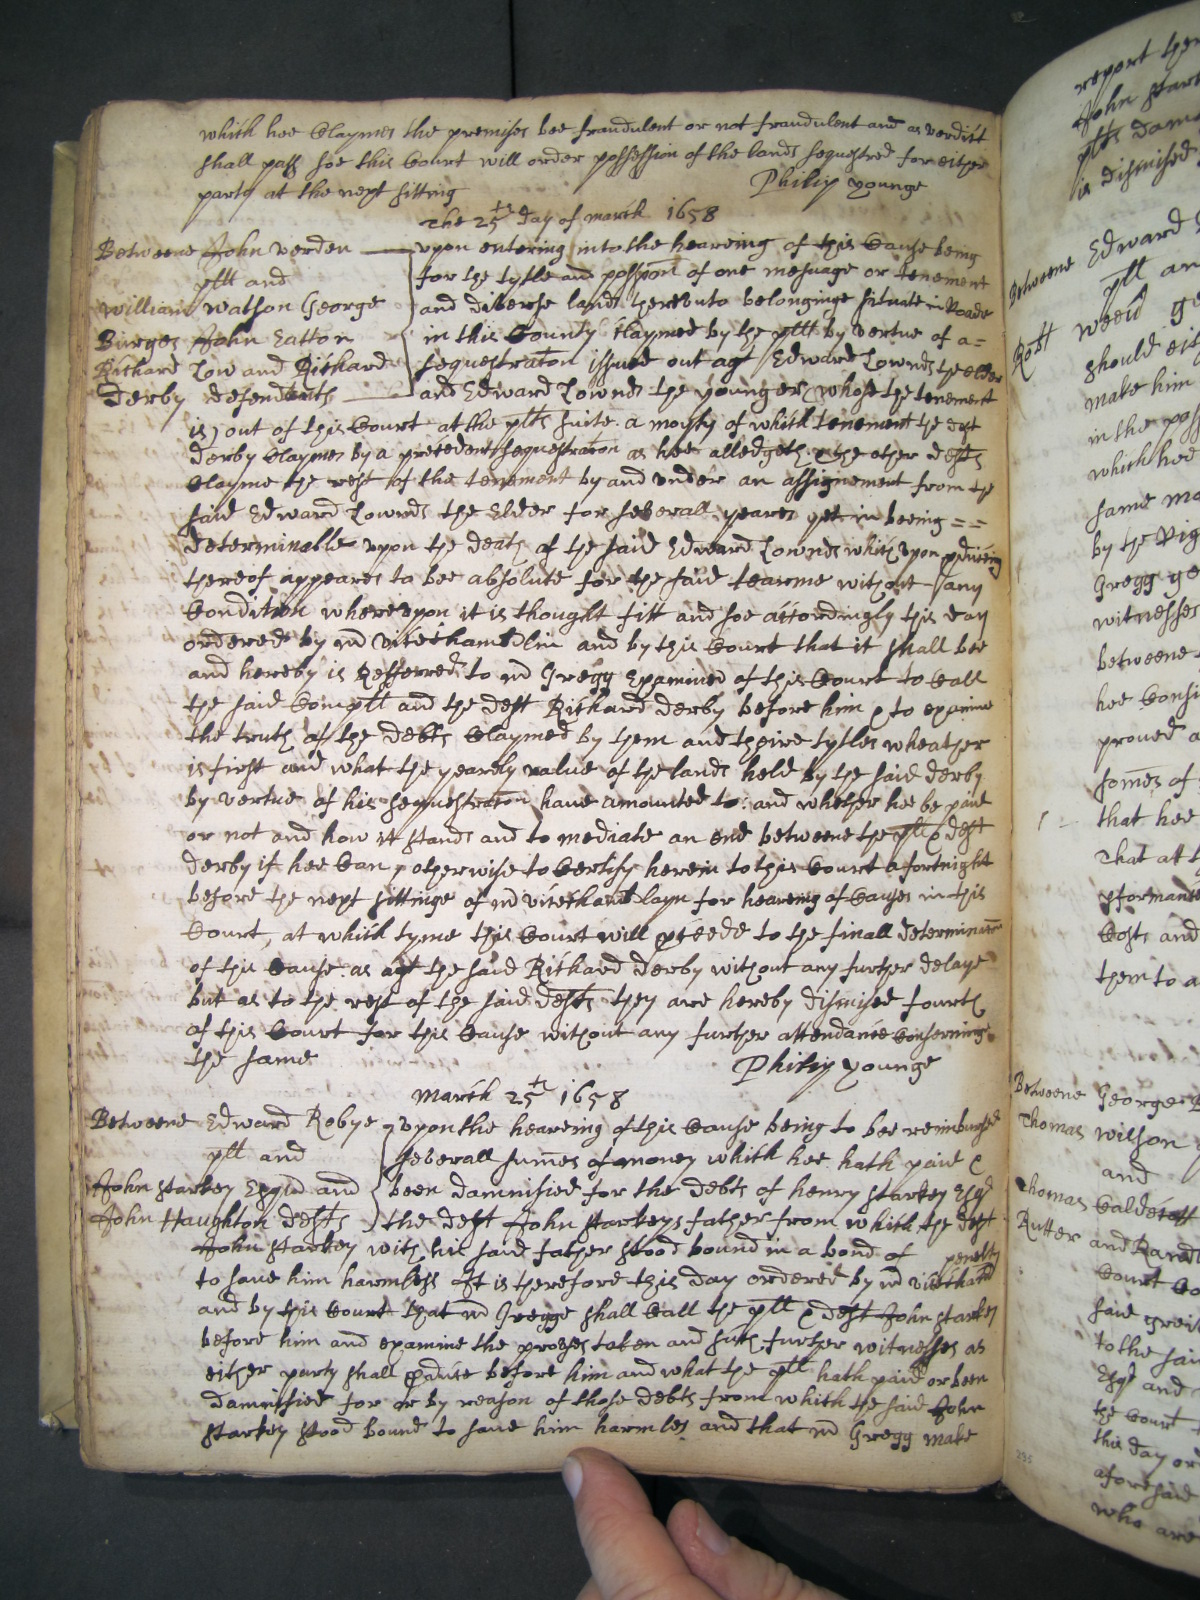 which hee Claymes the premises bee fraudulent or not fraudulent and as verdict
shall pass soe this Court will order possession of the lands sequestred for either
party at the next sitting Philip Younge
The 25th day of march 1658
Betweene John Verden upon entering into the heareing of this Cause being
pltt and for the tytle and possion of one mesuage or tenement
William Watson George and diverse lands thereunto belonginge situate in Roade
Burges John Eatton in this County Claymed by the pltt by vertue of a =
Richard Low and Richard sequestraton issued out agt Edward Lownds the elder
Derby defendents and Edward Lownds the younger (whose the tenement
is) out of this Court at the pltts suite. a moyty of which tenement the deft
Derby Claymes by a precedent sequestraton as hee alledgeth & the other defts
Clayme the rest of the tenement by and under an assignement from the
said Edward Lownds the Elder for severall yeares yet in beeing = =
determinable upon the death of the said Edward Lownds which upon pduceing
thereof appeares to bee absolute for the said tearme without any
Condition whereupon it is thought fitt and soe accordingly this day
ordered by mr vicechamblin and by this Court that it shall bee
and hereby is Refferred to mr Gregg Examiner of this Court to Call
the said Compltt and the deft Richard Derby before him & to examine
the truth of the debts Claymed by them and theire tytles wheather
is first and what the yearely value of the lands held by the said Derby
by vertue of his sequestraton have amounted to: and whether hee be paid
or not and how itt stands and to mediate an end betweene the pltt & deft
Derby if hee Can, otherwise to Certify herein to this Court a fortnight
before the next sittinge of mr vicechamb layn for heareing of Causes in this
Court, at which tyme this Court will pceede to the finall determinacon
of this Cause. as agt the said Richard Derby without any further delaye
but as to the rest of the said defts they are hereby dismised fourth
of this Court for this Cause without any further attendance Conserninge
the same Philip Younge
March 25th 1658
Betweene Edward Robye upon the heareing of this Cause being to bee reimbursed
pltt and severall sumes of money which hee hath paid &
John Starkey Esqr and been damnified for the debts of henry Starkey Esqr
John Haughton defts the deft John Starkeys father from which the deft
John Starkey with his said father stood bound in a bond of penelty
to save him harmless It is therefore this day ordered by mr vicechamb
and by this Court that mr Gregge shall Call the pltt & deft John Starkey
before him and examine the prooffes taken and such further witnesses as
either party shall pduce before him and what the pltt hath paid or been
damnified for or by reason of those debts from which the said John
Starkey stood bound to save him harmles and that mr Gregg make
report
John Star
is dismised
Betweene Edward
pltt an
Robtt Weeid
should eit
make him
in the pos
which hee
same mo
by the
Gregg
witnesses
betweene
hee Consi
proved a
somes of
that hee
That at t
pformance
Costs and
them to a
Betweene George
Thomas Wilson
and
Thomas Caldecott
Rutter and Rand
Court Co
said
to the sai
Esqr and
the Court
this day or
aforesaid
who are